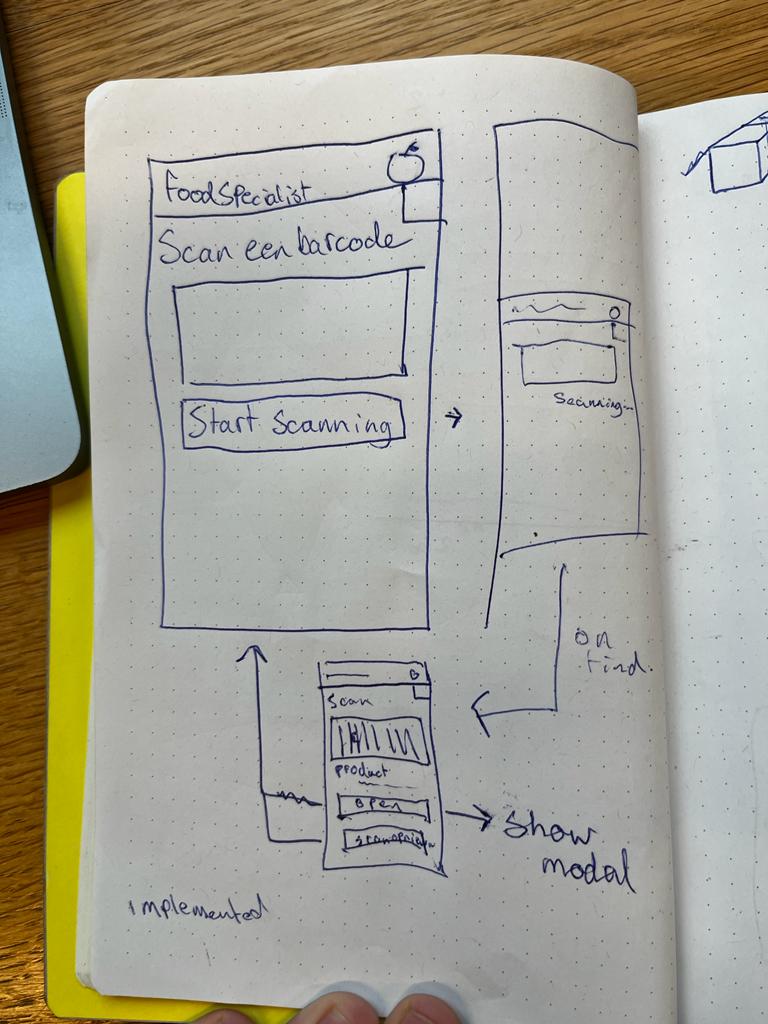 FoodSpecialist
Scan een barcode
Start Scanning
Scanning...
on
find.
Scan
product
open
Show
modal
implemented